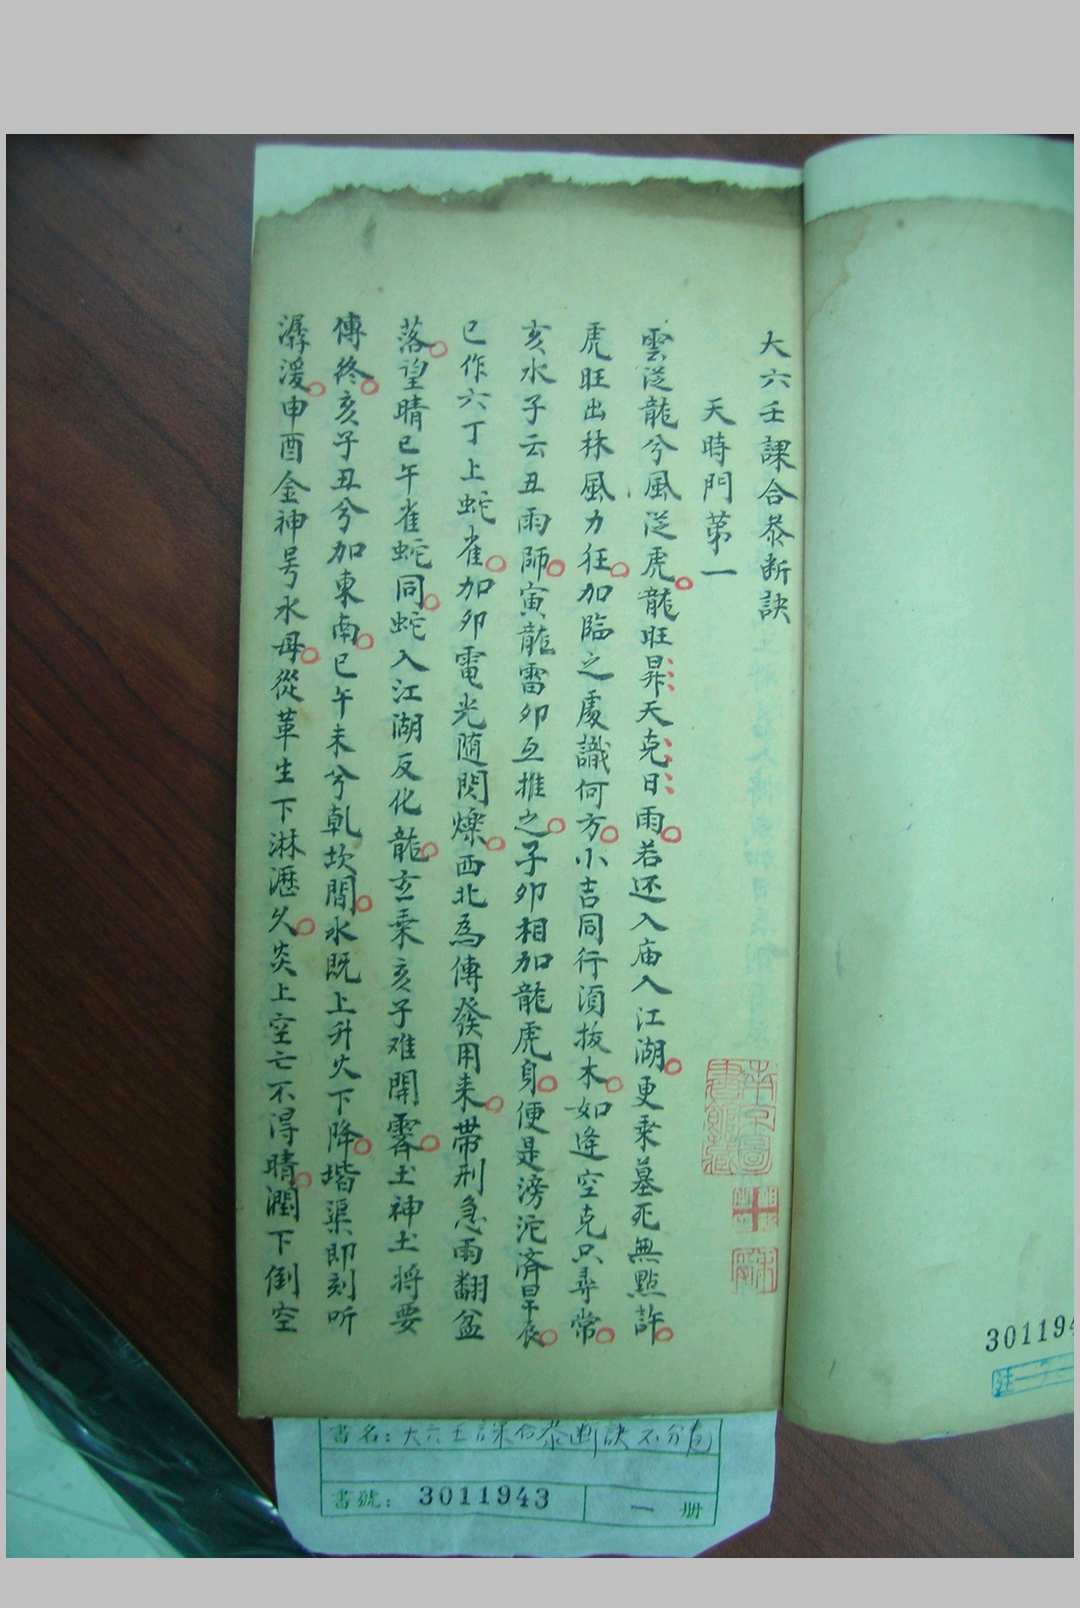 大六壬課合叅断訣
天時門苐一
雲泛龍兮風泛虎龍旺昇天克日雨若还入庙入江湖更乘墓死無點許
虎旺出林風力狂加臨之處識何方小吉同行須拔木如逢空克只尋常
亥水子云丑雨師寅龍雷卯互推之子卯相加龍虎身便是滂沱済旱辰
巳作六丁上蛇雀加卯電光随閃爍西北為傳發用来帶刑急雨翻盆
落望晴巳午雀蛇同蛇入江湖反化龍玄乗亥子难開霽土神土将要
傳終亥子丑兮加東南巳午未兮乹坎間水既上升火下降堦渠即刻听
潺湲申酉金神号水母從革生下淋瀝久炎上空亡不得晴潤下倒空
南京圖書館藏
3011943
書名：大六壬課合叅断訣不分卷
書號：3011943 一 册